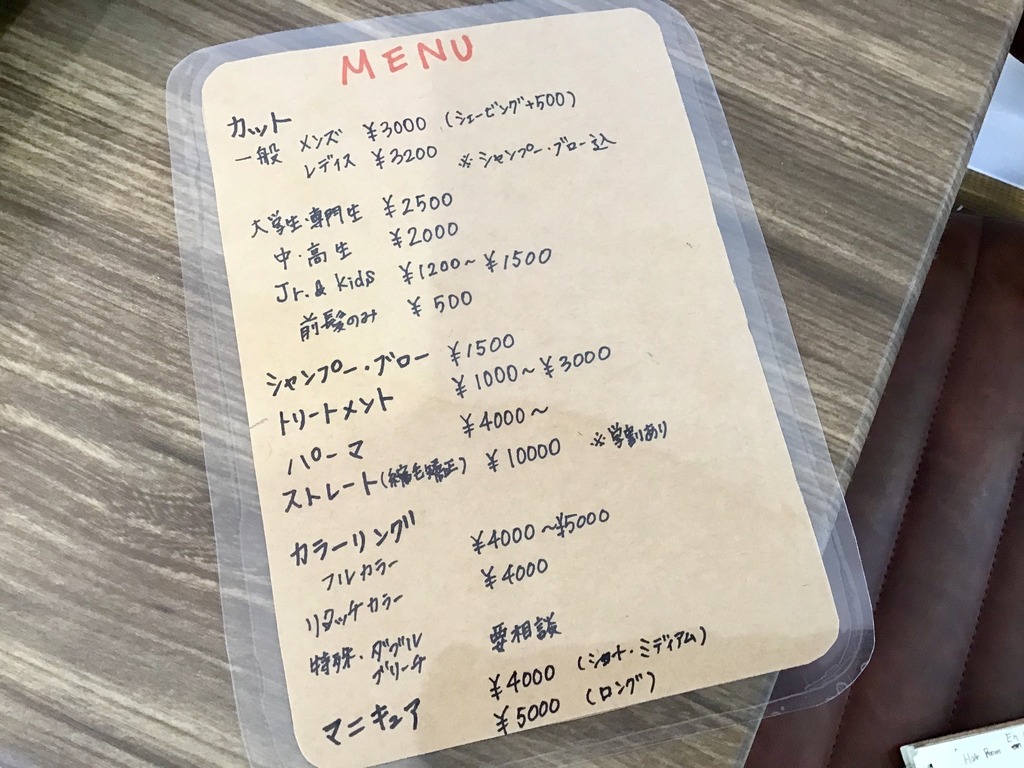 MENU
カット
一般 メンズ ¥3000 (シェービング+500)
レディス ¥3200 ※シャンプー・ブロー込
大学生・専門生 ¥2500
中・高生 ¥2000
Jr.& kids ¥1200~¥1500
前髪のみ ¥500
シャンプー・ブロー ¥1500
トリートメント ¥1000~¥3000
パーマ ¥4000~
ストレート(縮毛矯正) ¥10000 ※学割あり
カラーリング
フルカラー ¥4000~¥5000
リタッチカラー ¥4000
特殊・ダブル
ブリーチ 要相談
マニキュア ¥4000 (ショート・ミディアム)
¥5000 (ロング)
Hair Room En